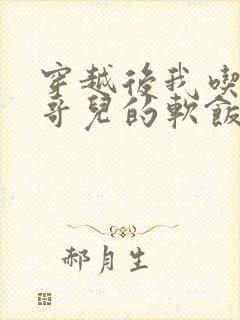 穿越後我喫
哥兒的軟飯
郝月生